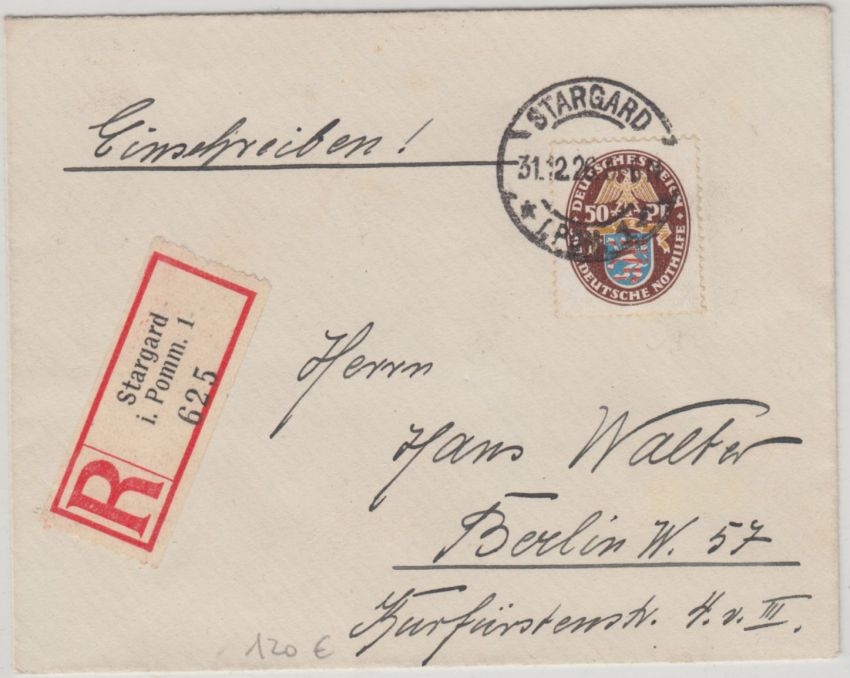 Einschreiben!
STARGARD
31.12.26
* i. Pomm. *
DEUTSCHES REICH
50 Pf
DEUTSCHE NOTHILFE
Stargard
i. Pomm. 1
625
R
Herrn
Hans Walter
Berlin W. 57
Kurfürstenstr. 4. v. III.
120 €